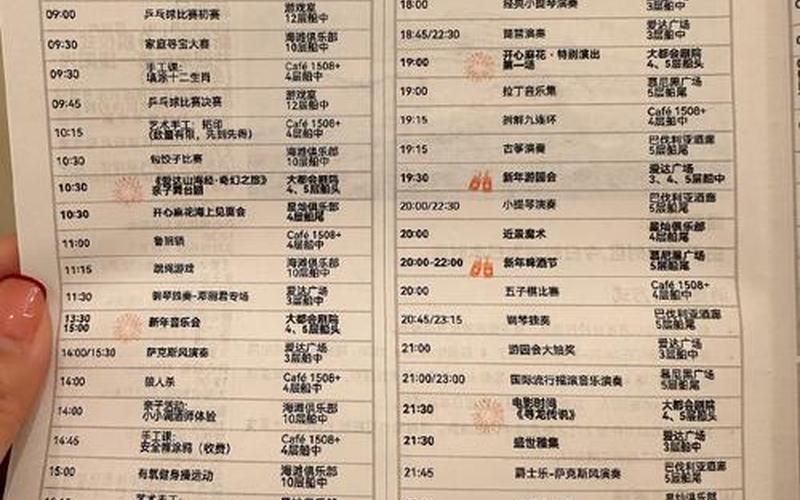 09:00 乒乓球比赛初赛 游戏室
12层船中
09:30 家庭寻宝大赛 海滩俱乐部
10层船中
09:30 手工课: Café 1508+
填涂十二生肖 4层船中
09:45 乒乓球比赛决赛 游戏室
12层船中
10:15 艺术手工: 拓印 Café 1508+
(数量有限，先到先得) 4层船中
10:30 包饺子比赛 海滩俱乐部
10层船中
10:30 《爱达山海经·奇幻之旅》 大都会剧院
亲子舞台剧 4、5层船头
10:30 开心麻花海上见面会 星灿俱乐部
4层船尾
11:00 鲁班锁 Café 1508+
4层船中
11:15 跳绳游戏 海滩俱乐部
10层船中
11:30 钢琴独奏-邓丽君专场 爱达广场
3层船中
13:30 新年音乐会 大都会剧院
15:00 4、5层船头
14:00/15:30 萨克斯风演奏 爱达广场
3层船中
14:00 狼人杀 Café 1508+
4层船中
14:00 亲子活动: 海滩俱乐部
小小调酒师体验 10层船中
14:45 手工课: Café 1508+
安全裤涂鸦（收费） 4层船中
15:00 有氧健身操运动 海滩俱乐部
10层船中
艺术手工:
18:00 经典小提琴演奏
3层船中
18:45/22:30 琵琶演奏 爱达广场
3层船中
19:00 开心麻花·特别演出 大都会剧院
第一场 4、5层船头
19:00 拉丁音乐集 慕尼黑广场
5层船尾
19:15 拆解九连环 Café 1508+
4层船中
19:15 古筝演奏 巴伐利亚酒廊
5层船尾
19:30 新年游园会 爱达广场
3、4、5层船中
20:00/22:30 小提琴演奏 巴伐利亚酒廊
5层船尾
20:00 近景魔术 星灿俱乐部
4层船尾
20:00-22:00 新年啤酒节 慕尼黑广场
5层船尾
20:00 五子棋比赛 Café 1508+
4层船中
20:45/23:15 钢琴独奏 巴伐利亚酒廊
5层船尾
21:00 游园会大抽奖 爱达广场
3层船中
21:00/23:00 国际流行摇滚音乐演奏 慕尼黑广场
5层船尾
21:30 电影时间 大都会剧院
《寻龙传说》 4、5层船头
21:30 盛世雅集 爱达广场
3层船中
21:45 爵士乐-萨克斯风演奏 巴伐利亚酒廊
5层船尾
星灿俱乐部